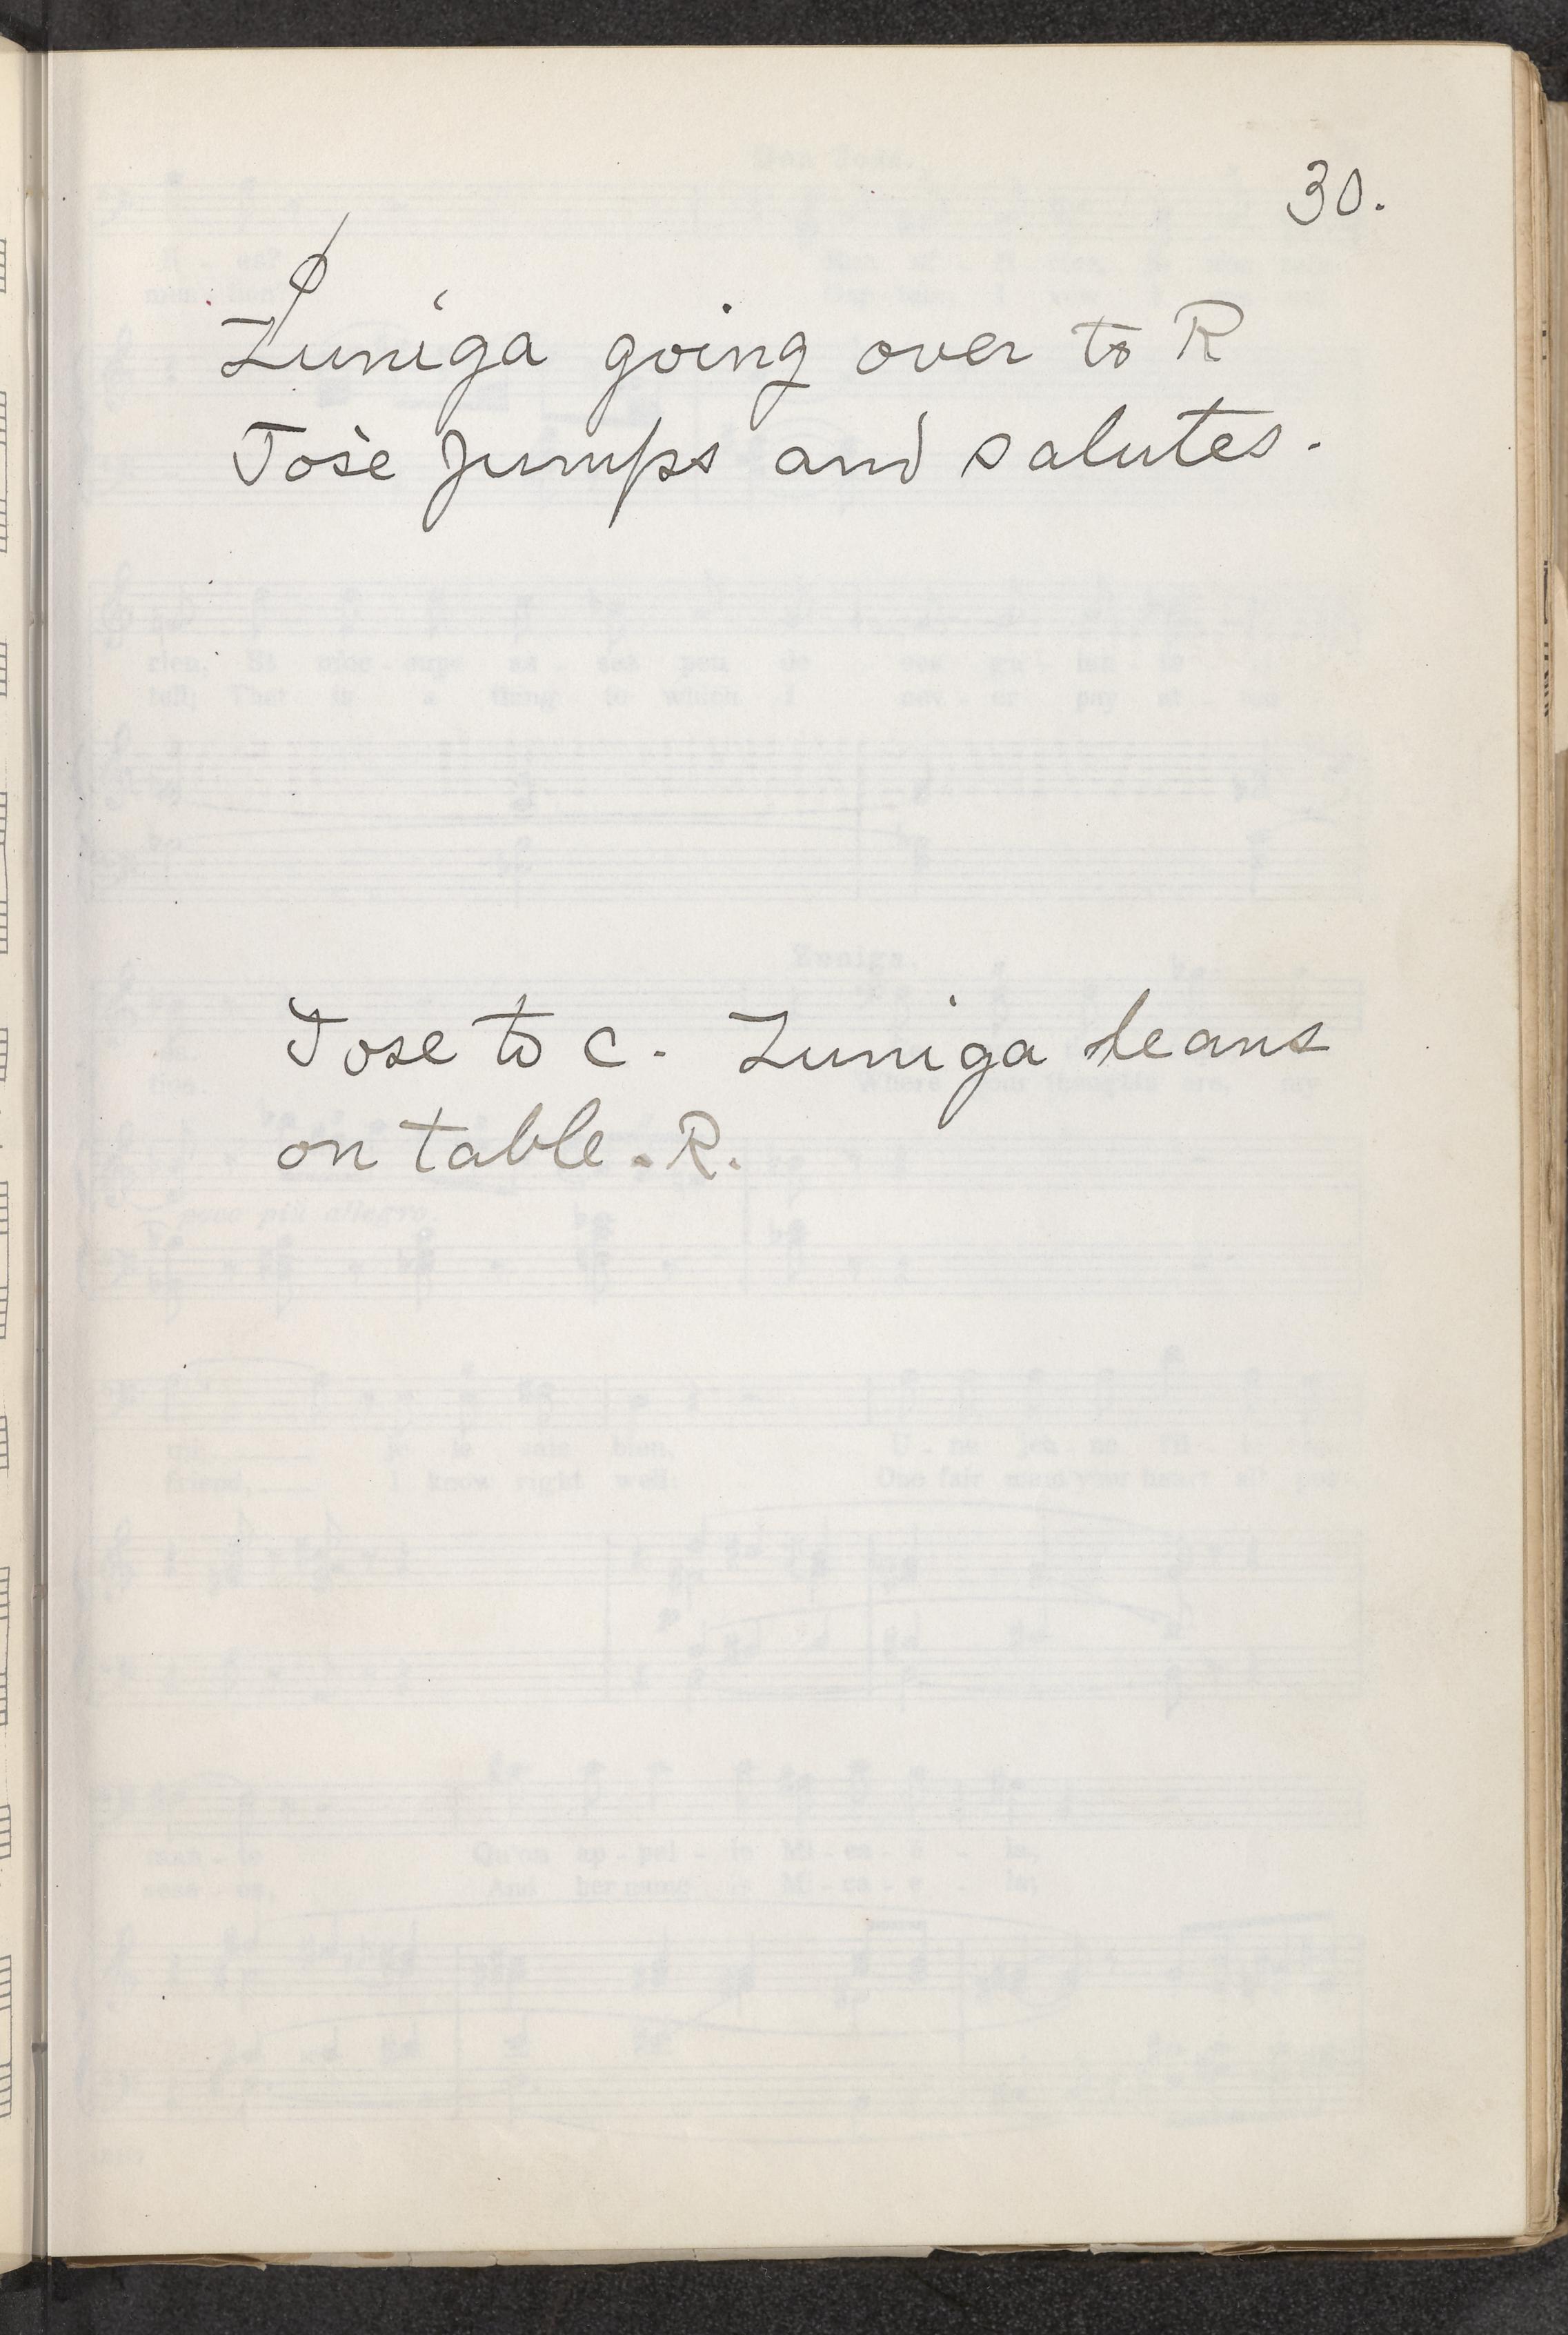 30.
Zuniga going over to R
Josè jumps and salutes.
Jose to C. Zuniga leans
on table. R.